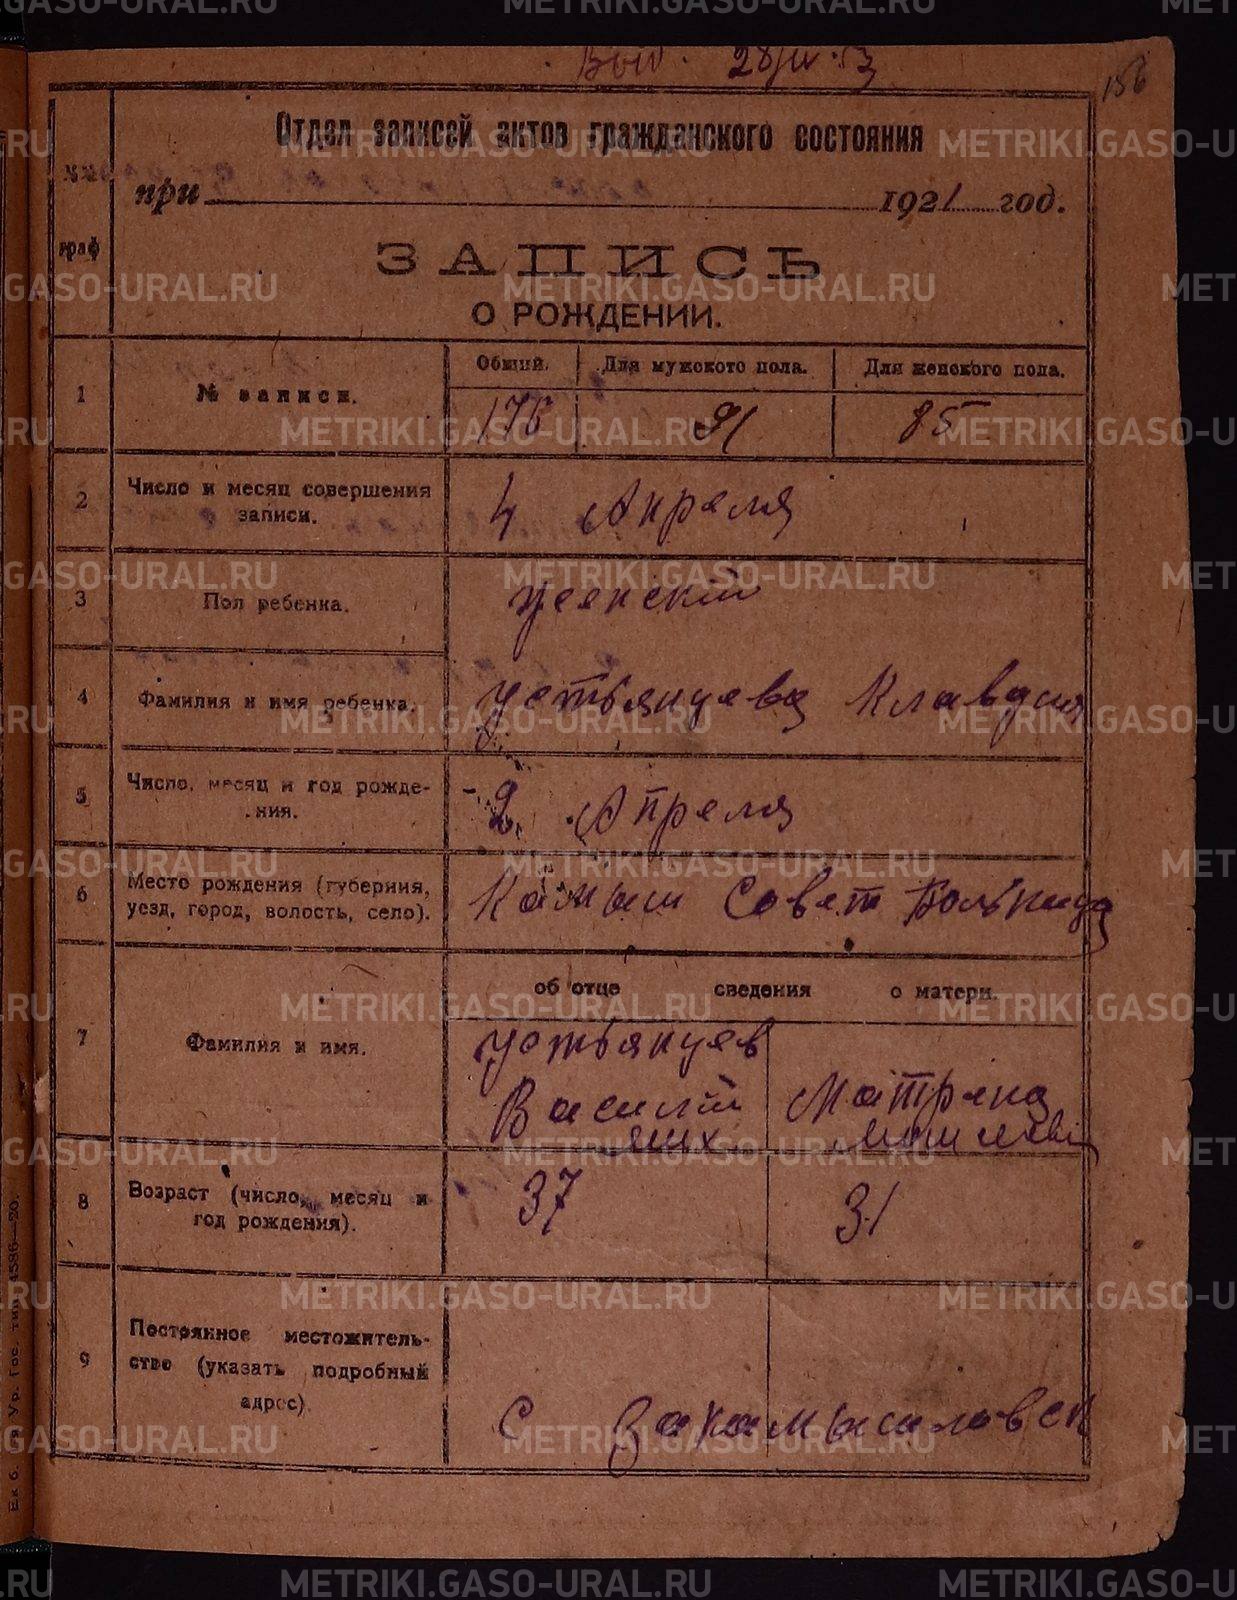 Выд. 28/IV.53
156
Отдел записей актов гражданского состояния
при 1921 год.
граф
ЗАПИСЬ
О РОЖДЕНИИ.
1 № записи. Общий. Для мужского пола. Для женского пола.
176 91 85
2 Число и месяц совершения
записи.
4 Апреля
3 Пол ребенка. женский
4 Фамилия и имя ребенка. Устьянцева Клавдия
5 Число, месяц и год рожде-
ния.
2 Апреля
6 Место рождения (губерния,
уезд, город, волость, село).
Камыш Совет Больница
об отце сведения о матери.
7 Фамилия и имя.
Устьянцев
Василий Матрена
8 Возраст (число, месяц и
год рождения).
37 31
9 Постоянное местожитель-
ство (указать подробный
адрес).
с Закамышловск
Ек б. Ур. Гос. тип. 4586—20.
METRIKI.GASO-URAL.RU